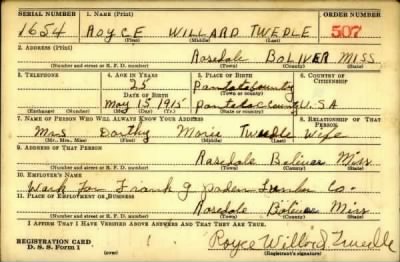 SERIAL NUMBER 1. NAME (Print) ORDER NUMBER
1654 ROYCE WILLARD TWEDLE 507
(First) (Middle) (Last)
2. ADDRESS (Print)
Rosedale BOLIVER MISS
(Number and street or R. F. D. number) (Town) (County) (State)
3. TELEPHONE 4. AGE IN YEARS 5. PLACE OF BIRTH 6. COUNTRY OF CITIZENSHIP
25
DATE OF BIRTH (Town or county)
May 15 1915 U.S.A
(Exchange) (Number) (Mo.) (Day) (Yr.) (State or country)
7. NAME OF PERSON WHO WILL ALWAYS KNOW YOUR ADDRESS 8. RELATIONSHIP OF THAT PERSON
Mrs Dorthy Twedle Wife
(Mr., Mrs., Miss) (First) (Middle) (Last)
9. ADDRESS OF THAT PERSON
Rosedale Boliver Miss
(Number and street or R. F. D. number) (Town) (County) (State)
10. EMPLOYER'S NAME
Work For Frank G Co.
11. PLACE OF EMPLOYMENT OR BUSINESS
Rosedale Boliver Miss
(Number and street or R. F. D. number) (Town) (County) (State)
I AFFIRM THAT I HAVE VERIFIED ABOVE ANSWERS AND THAT THEY ARE TRUE.
REGISTRATION CARD Royce Willard Twedle
D. S. S. Form 1 (Registrant's signature)